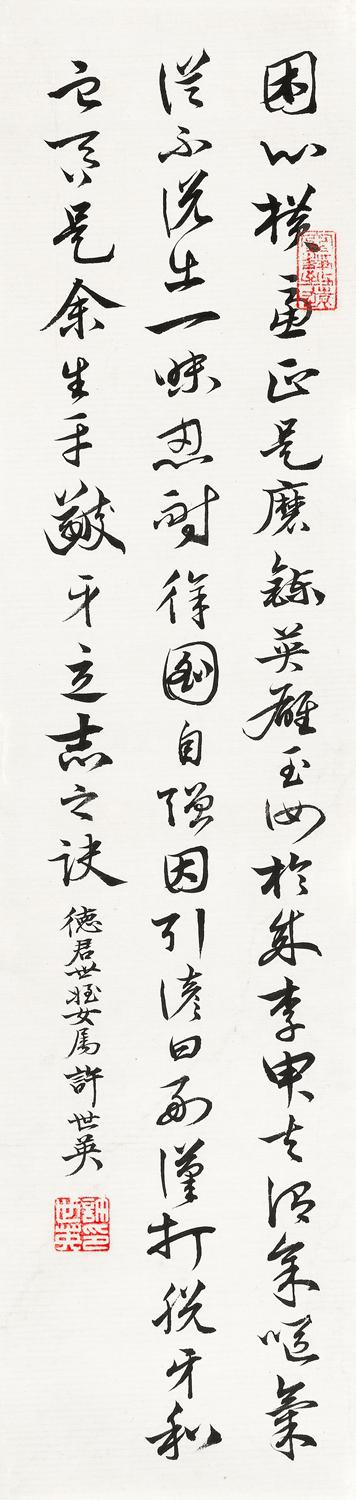 困心橫慮正是磨鍊英雄玉汝於成李申夫謂余嘔氣
從不說出一味忍耐徐圖自強因引諺曰好漢打脫牙和
血吞是余生平齩牙立志之訣 德君世姪女屬 許世英
許世英印